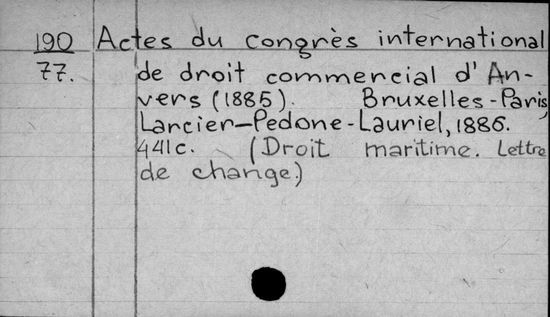 190
77.
Actes du congrès international
de droit commercial d'An-
vers (1885). Bruxelles-Paris,
Larcier-Pedone-Lauriel, 1886.
441c. (Droit maritime. Lettre
de change.)